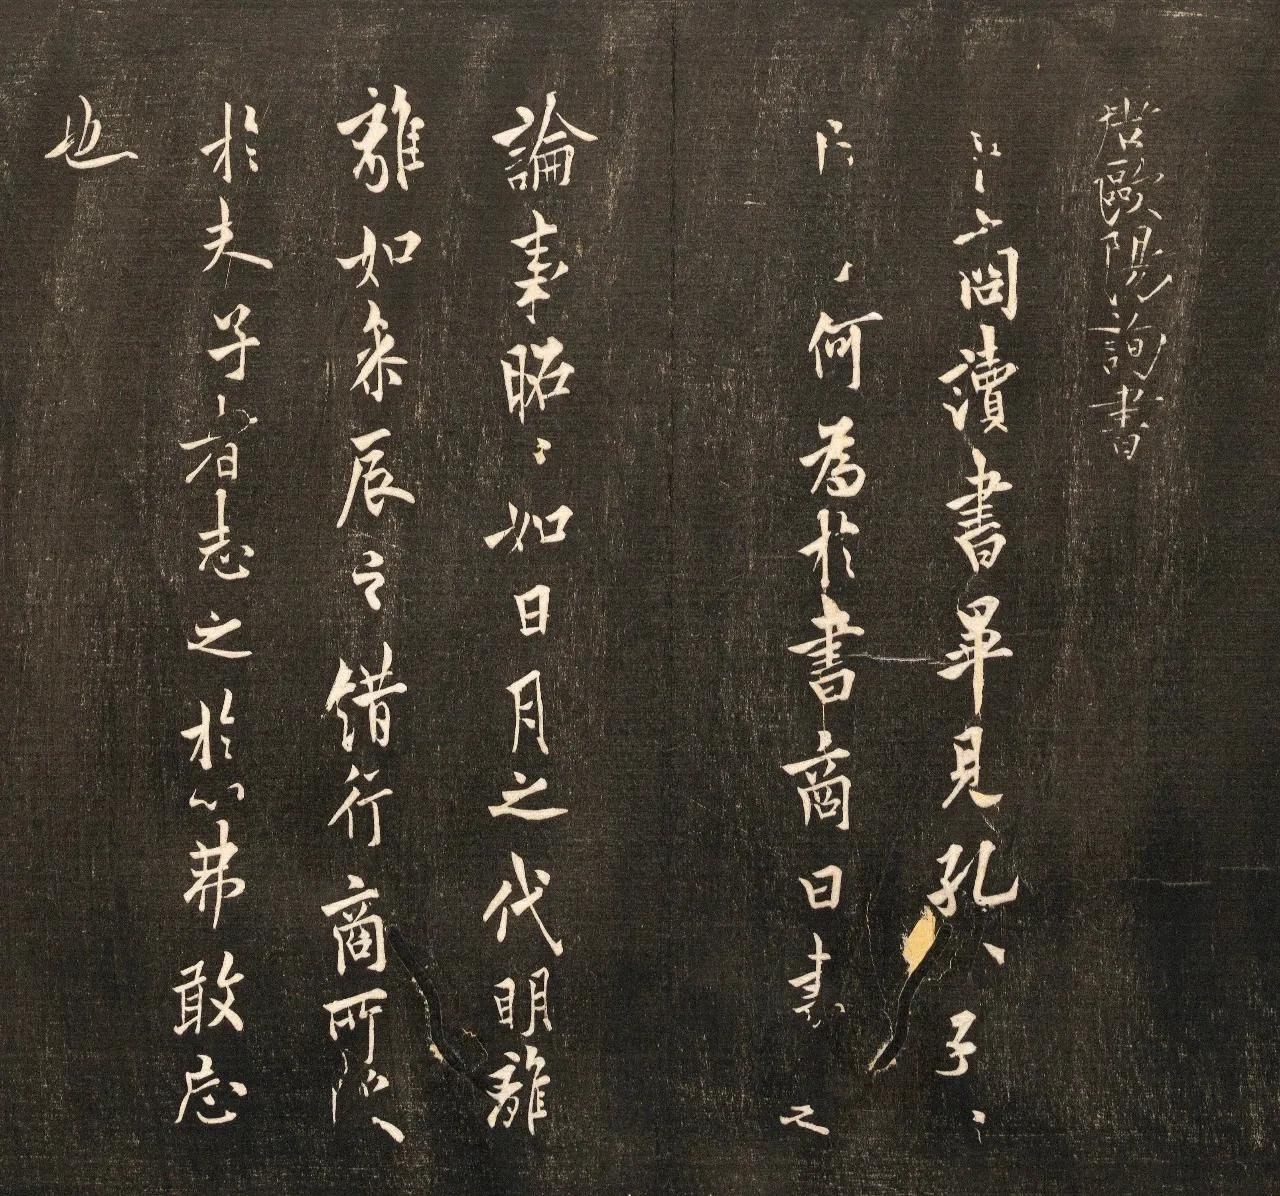 唐歐陽詢書
商問讀書畢見孔子子
何為於書商曰書之
論事昭〻如日月之代明離
離如参辰之錯行商所
於夫子者志之於心弗敢忘
也